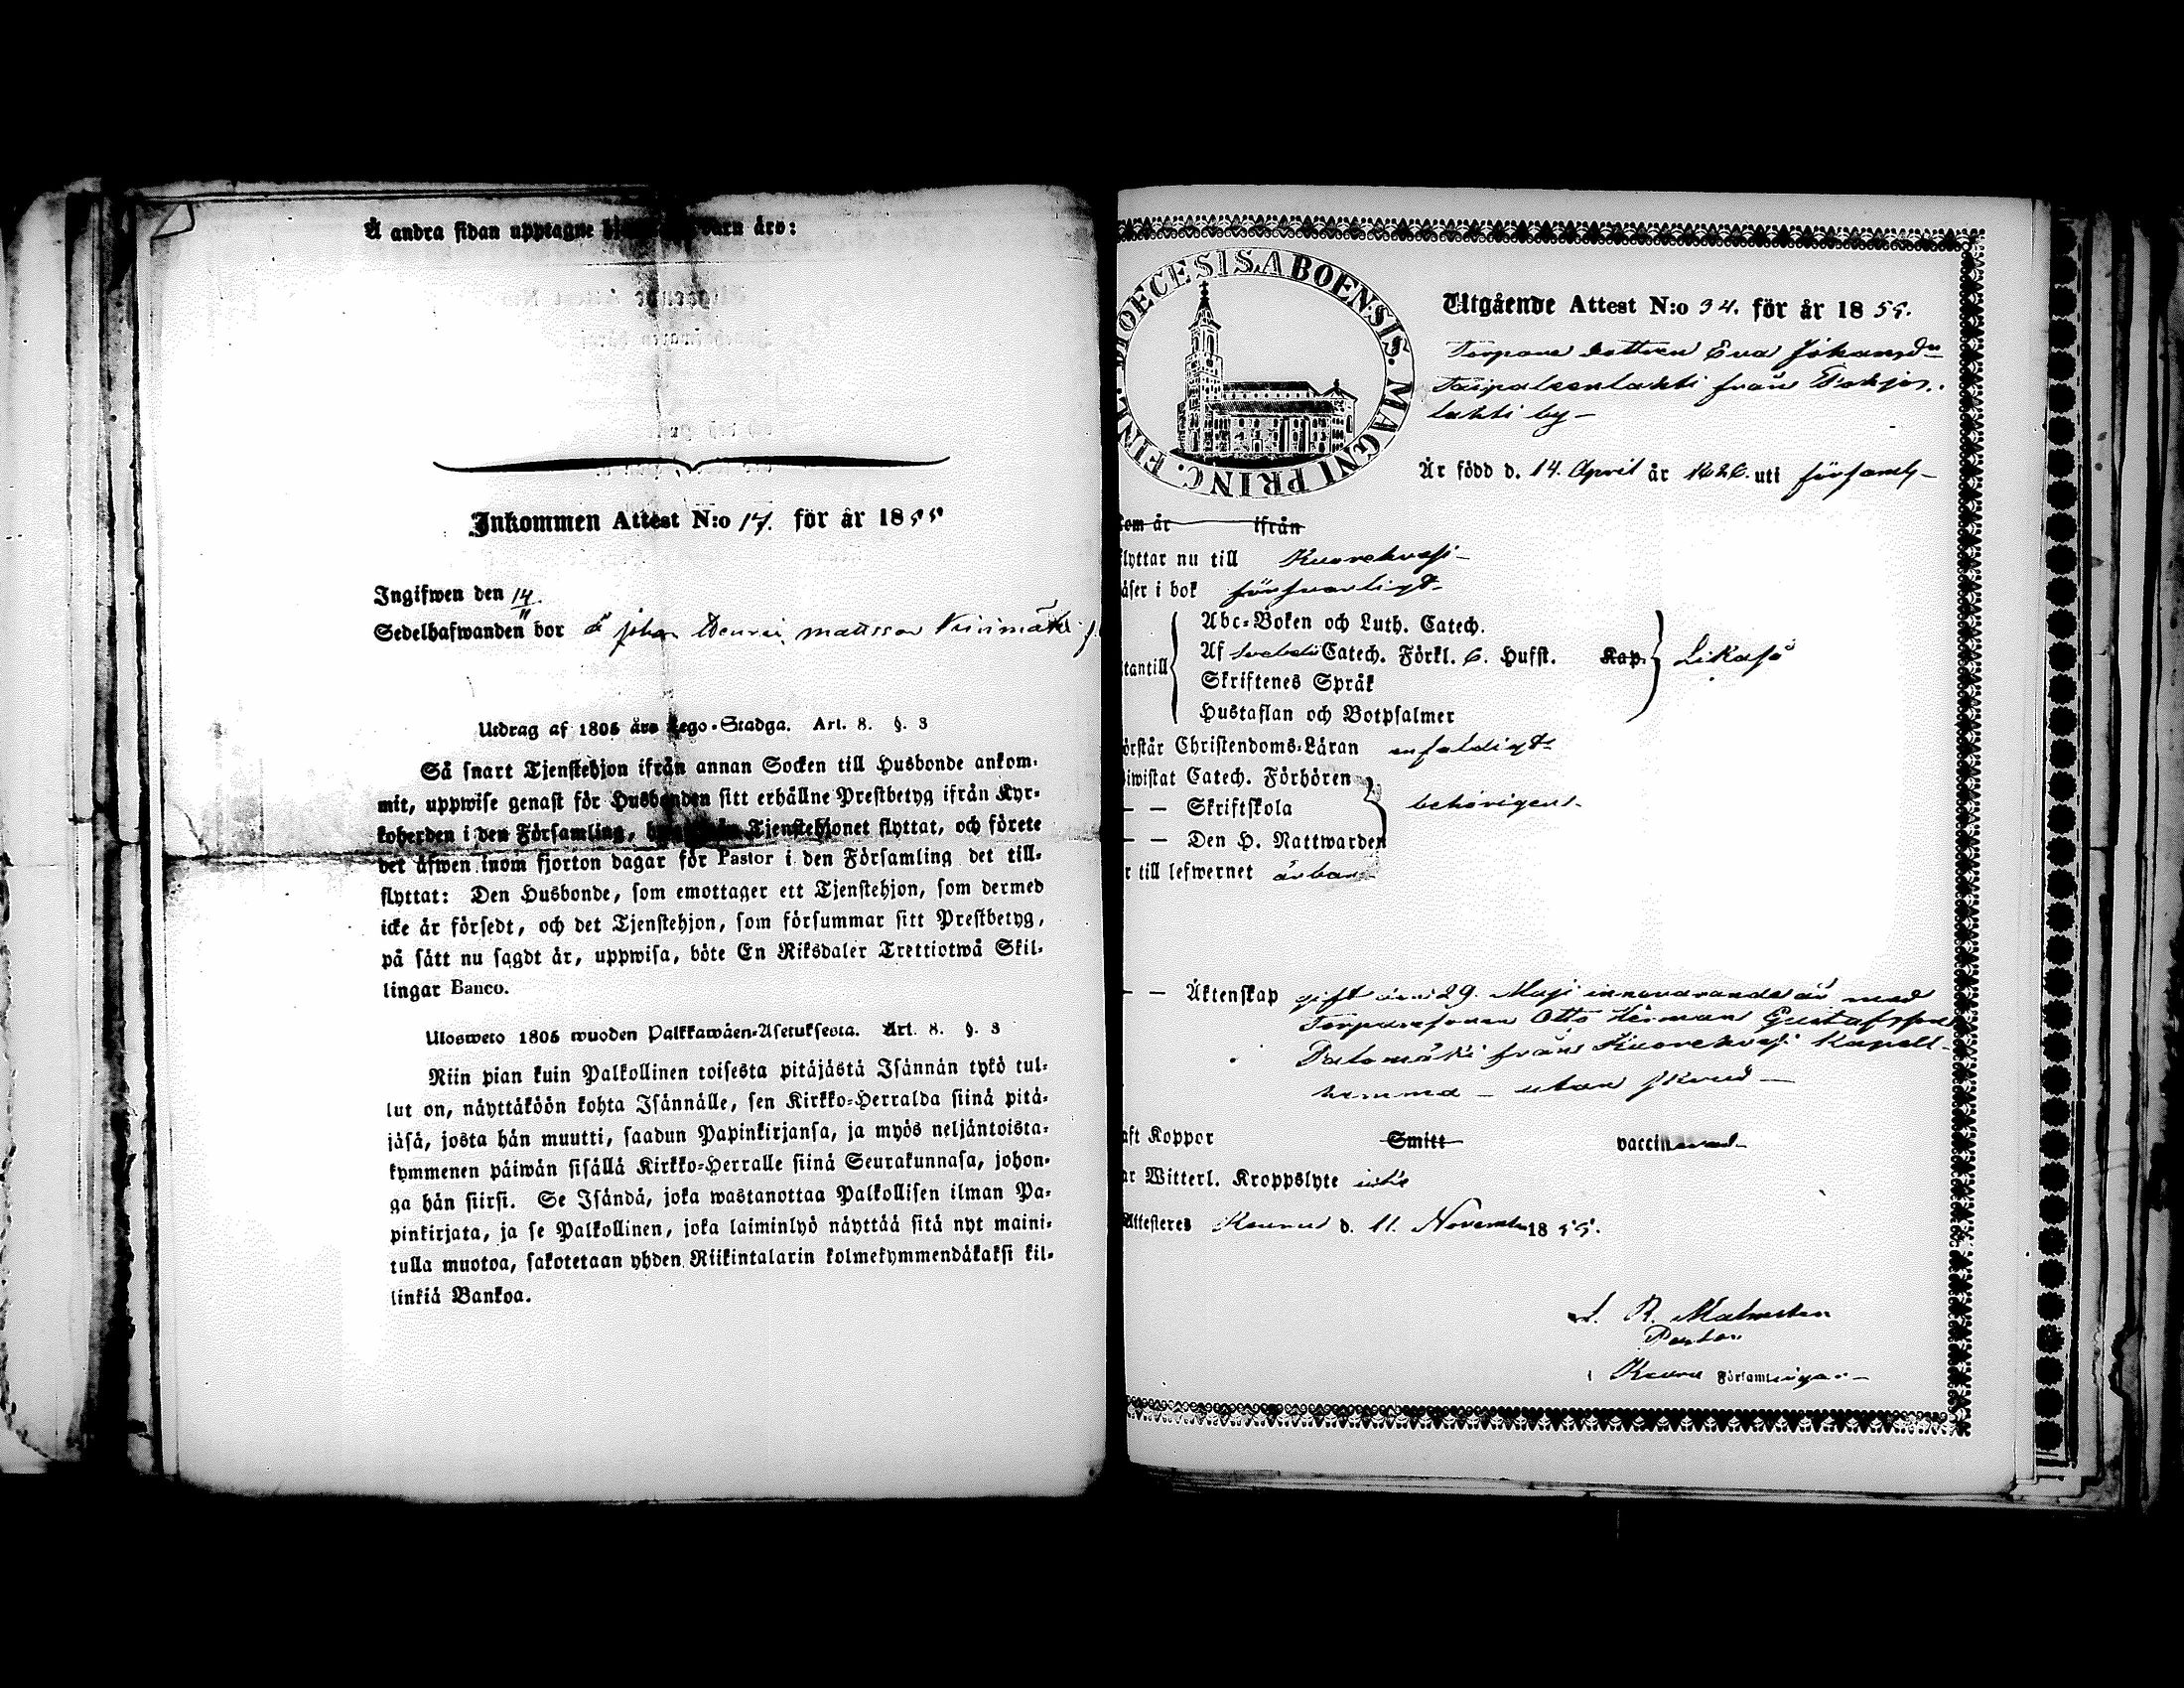 Å andra sidan upptagne barn äro:
Inkommen Attest N:o 17. för år 1855
Ingifwen den 14/11
Sedelhafwanden bor å Johan Henric Mattsson
Utdrag af 1805 års Lego-Stadga. Art. 8. §. 3
Så snart Tjenstehjon ifrån annan Socken till Husbonde ankom-
mit, uppwise genast för Husbonden sitt erhållne Prestbetyg ifrån Kyr-
koherden i den Församling, Tjenstehjonet flyttat, och förete
det äfwen inom fjorton dagar för Pastor i den Församling det till-
flyttat: Den Husbonde, som emottager ett Tjenstehjon, som dermed
icke är försedt, och det Tjenstehjon, som försummar sitt Prestbetyg,
på sätt nu sagdt är, uppwisa, böte En Riksdaler Trettiotwå Skil-
lingar Banco.
Ulosweto 1805 wuoden Palkkawäen-Asetuksesta. Art. 8. §. 3
Niin pian kuin Palkollinen toisesta pitäjästä Isännän tykö tul-
lut on, näyttäköön kohta Isännälle, sen Kirkko-Herralda siinä pitä-
jäsä, josta hän muutti, saadun Papinkirjansa, ja myös neljäntoista-
kymmenen päiwän sisällä Kirkko-Herralle siinä Seurakunnasa, johon-
ga hän siirsi. Se Isändä, joka wastanottaa Palkollisen ilman Pa-
pinkirjata, ja se Palkollinen, joka laiminlyö näyttää sitä nyt maini-
tulla muotoa, sakotetaan yhden Riikintalarin kolmekymmendäkaksi kil-
linkiä Bankoa.
DIOECESIS ABOENSIS. MAGNI PRINC. FINL.
Utgående Attest N:o 34. för år 1855.
Torpare dottren Eva Johansdr
Taipaleenlahti från
lahti by
Är född d. 14. April år uti församl
kom år ifrån
flyttar nu till Kuorehvesi
läser i bok försvarligt
utantill
Abc-Boken och Luth. Catech.
Af Svebelii Catech. Förkl. 6. Hufst. Kap. Likaså
Skriftenes Språk
Hustaflan och Botpsalmer
förstår Christendoms-Läran enfaldigt
biwistat Catech. Förhören
— — Skriftskola behörigen
— — Den H. Nattwarden
är till lefwernet ärbar
— — Äktenskap gift den 29. Maji innevarande år med
Torparesonen Otto Herman Gustafsson
från Kuorehvesi Kapell
hemma – utan skrud
haft Koppor Smitt vaccinerad
har Witterl. Kroppslyte icke
Attesteres Keuru d. 11. November 1855.
Malmsten
Pastor
i Keuru Församlingar